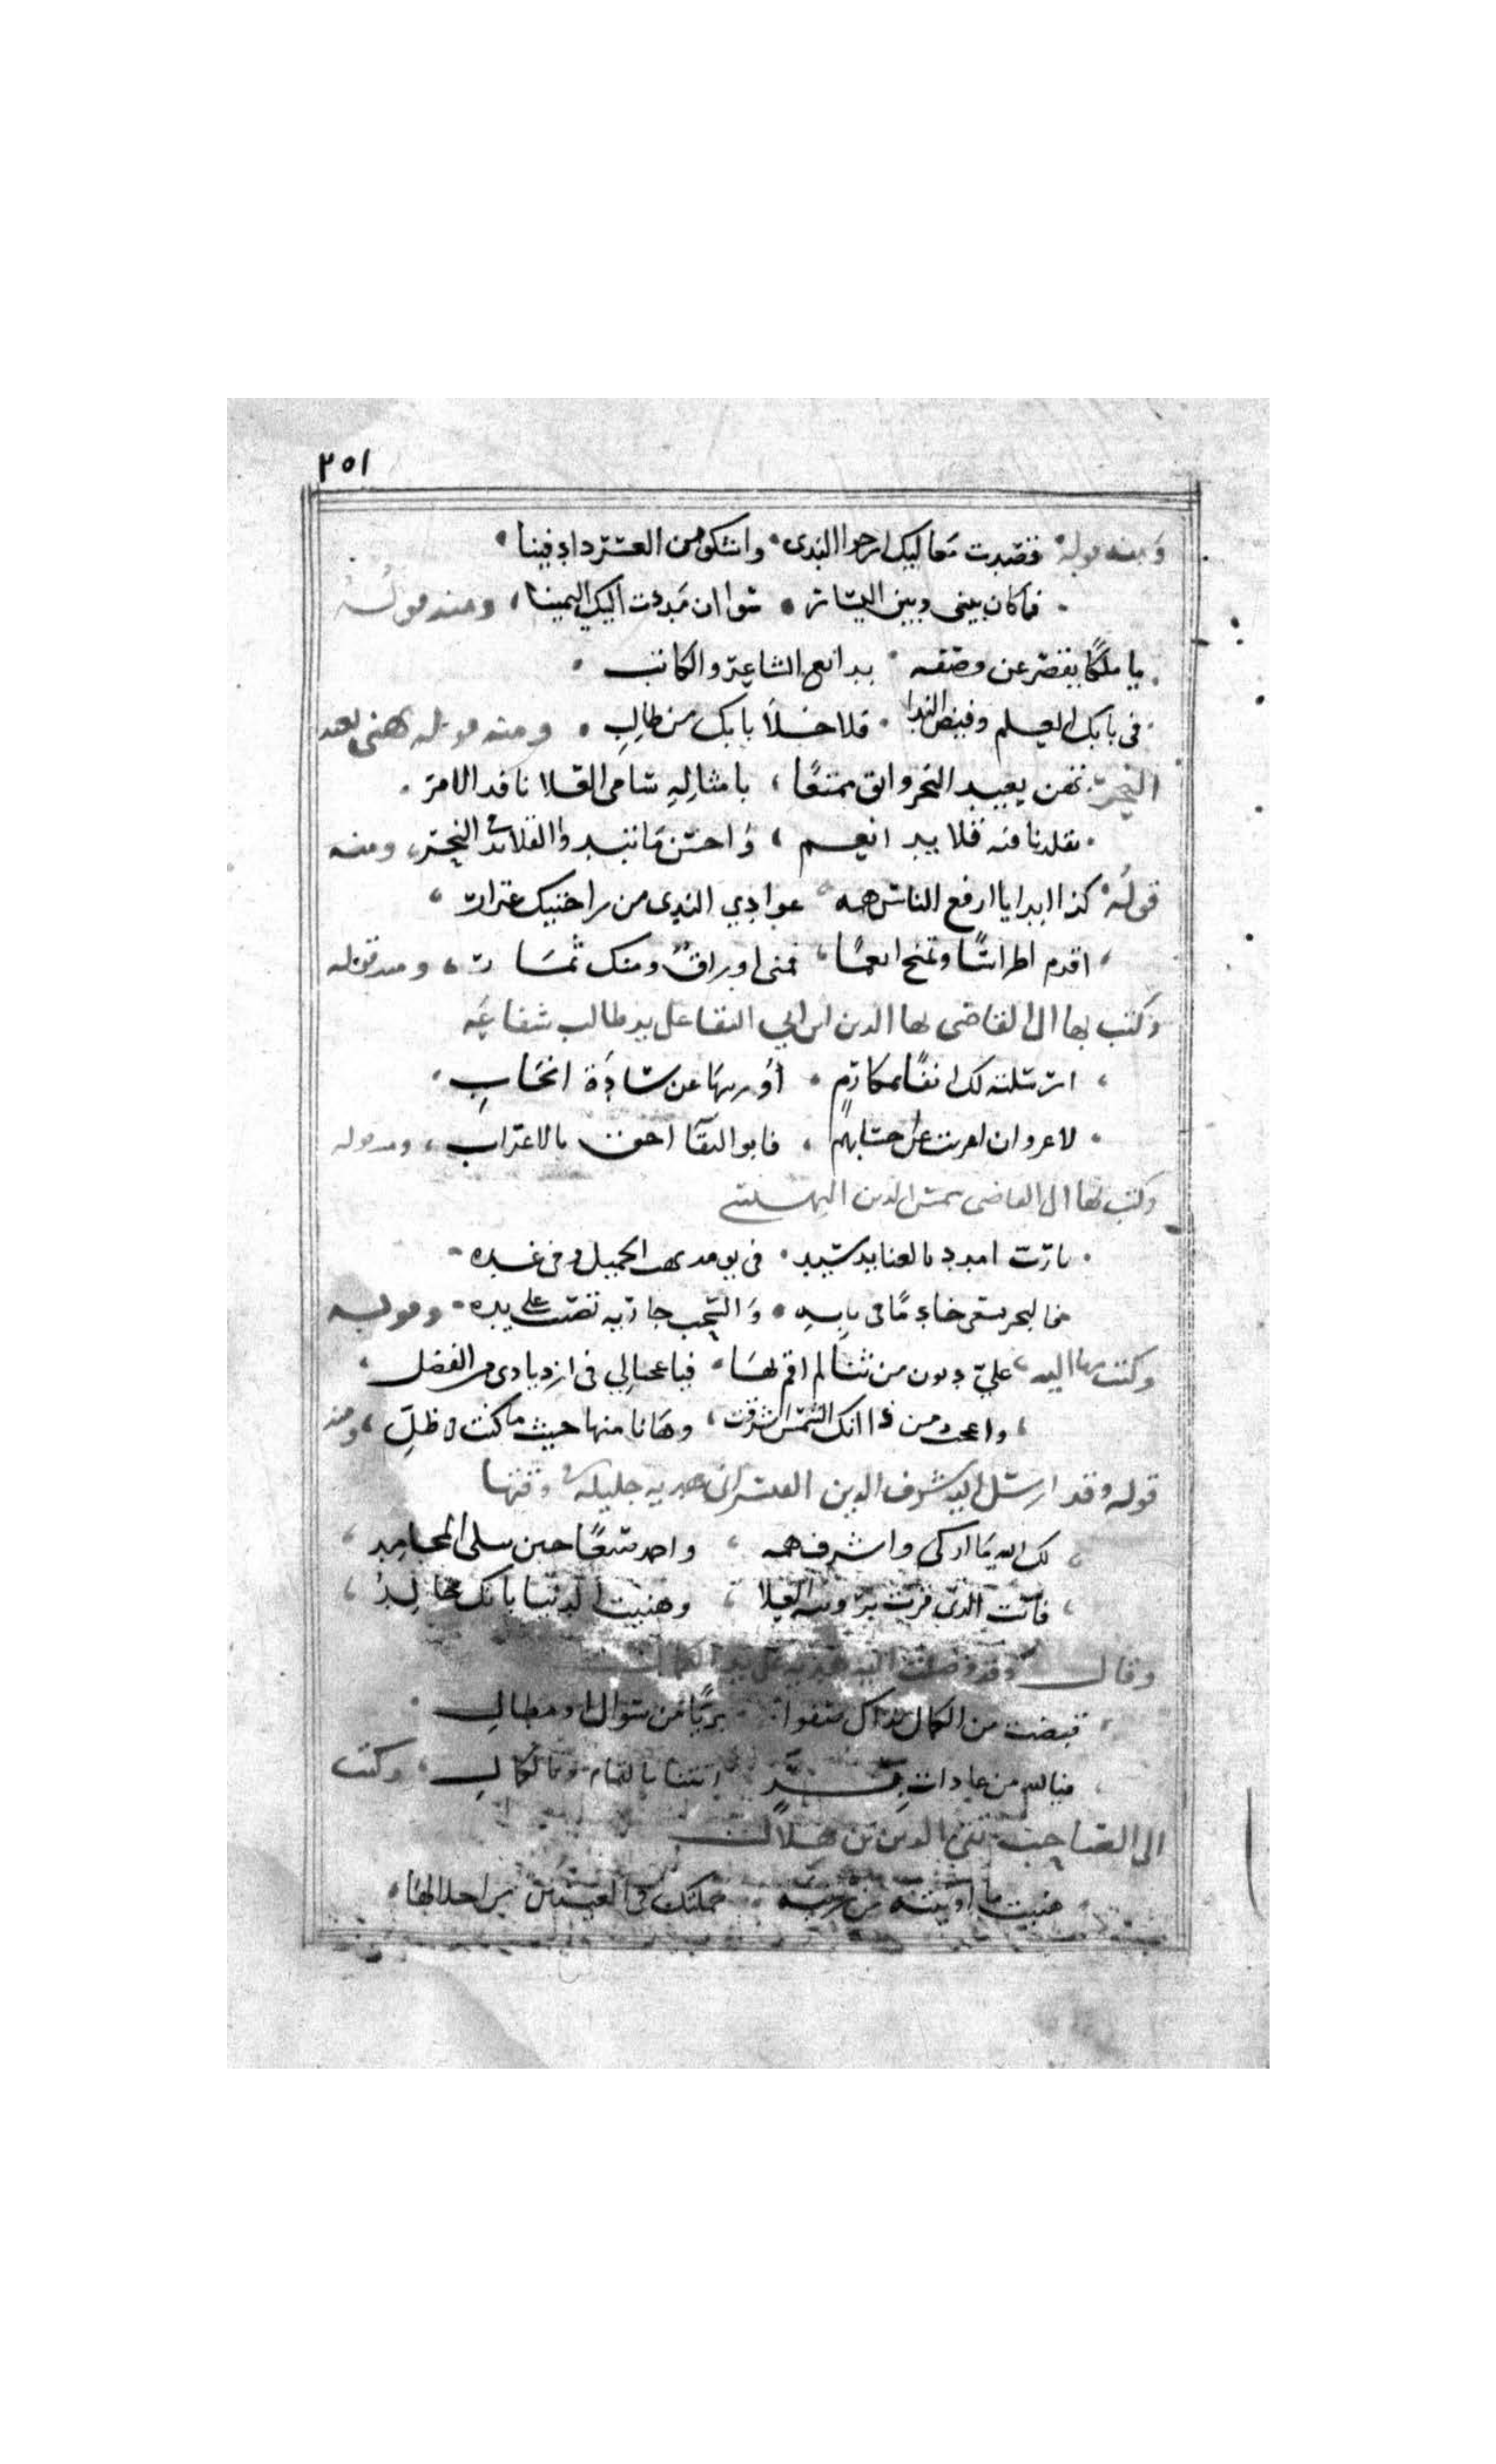 ٢٥١
ومنه قوله قصدت معاليك ارجو الندى واشكو من العسر دا دفينا
فما كان بيني وبين اليسار سوا ان مددت اليك اليمينا ومنه قوله
يا ملكا يقصر عن وصفه بدائع الشاعر والكاتب
في بابك العلم وفيض الندا فلا خلا بابك من طالب ومنه قوله يهني بعد
النحر تهن بعيد النحر وابق ممتعا بامثاله سامي العلا نافد الامر
تقلدنا فيه قلايد انعم واحسن ما تبدو القلائد في النحر ومنه
قوله كذا ابدا يا ارفع الناس همه عوادي الندى من راحتيك غزار
اقدم اطراسا وتمنح انعما فمني اوراق ومنك ثمار ومنه قوله
وكتب بها الى القاضي بها الدين ابن ابي البقا على يد طالب شفاعه
ارسلته لك انفا بمكارم ارويها عن سادة انجاب
لا غرو ان اعربت عن حسابهم فابو البقا احق بالاعراب ومنه قوله
وكتب بها الى القاضي شمس الدين البهنسي
يا رب امدد بالعنا يد سيد في يومه يهب الجميل وفي غده
فالبحر يسعى خادما في بابه والسحب جاريه تصب على يده وقوله
وكتب بها اليه علي ديون من ثنا لم اقم بها فيا عجبا لي في ازديادى من الفضل
واعجب من ذا انك الشمس اشرقت وها انا منها حيث ما كنت في ظل ومنه
قوله وقد ارسل اليه شرف الدين هديه جليله وقتها
لك الله ما ازكى واشرف همه واحمد سعيا حين تتلى المحامد
فانت الذي قرت به العلا وهنيت الدنيا بانك خالد
وقال وقد وصلت اليه هديه على يد الكمال
قبضت من الكمال نداك صفوا بريا من سوال او مطال
فيا لله من عادات بر اتتنا بالتمام وبالكمال وكتب
الى الصاحب تقي الدين بن هلال
هنيت ما اوتيته من رتبه حملتك في العينين من اجلالها